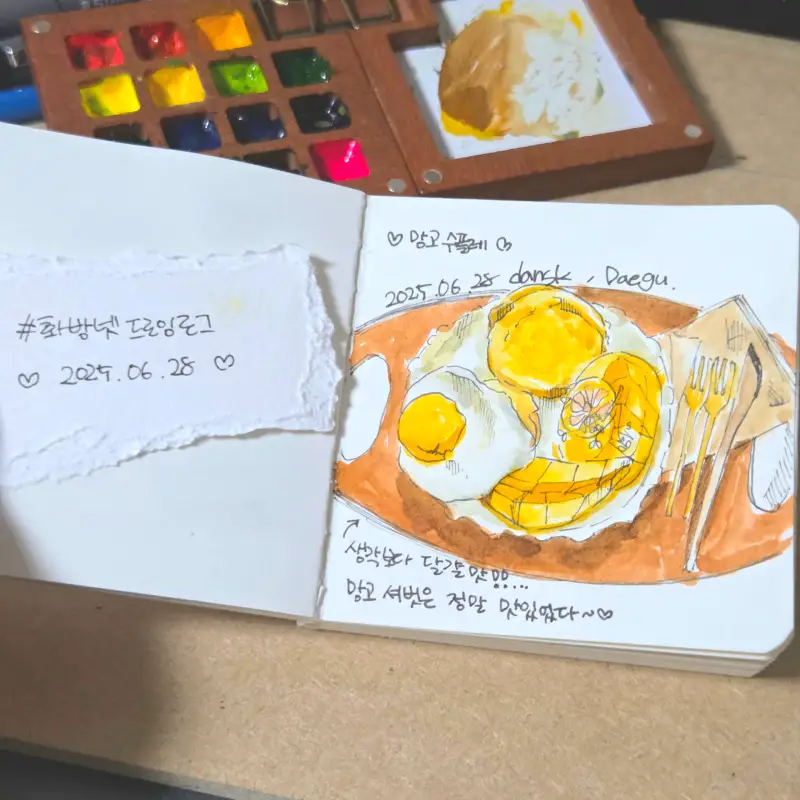 #화방넷 드로잉로그
♡ 2025.06.28 ♡
♡ 망고 수플레 ♡
2025.06.28 dansk, Daegu.
생각보다 달걀맛
망고 셔벗은 정말 맛있었다~♡